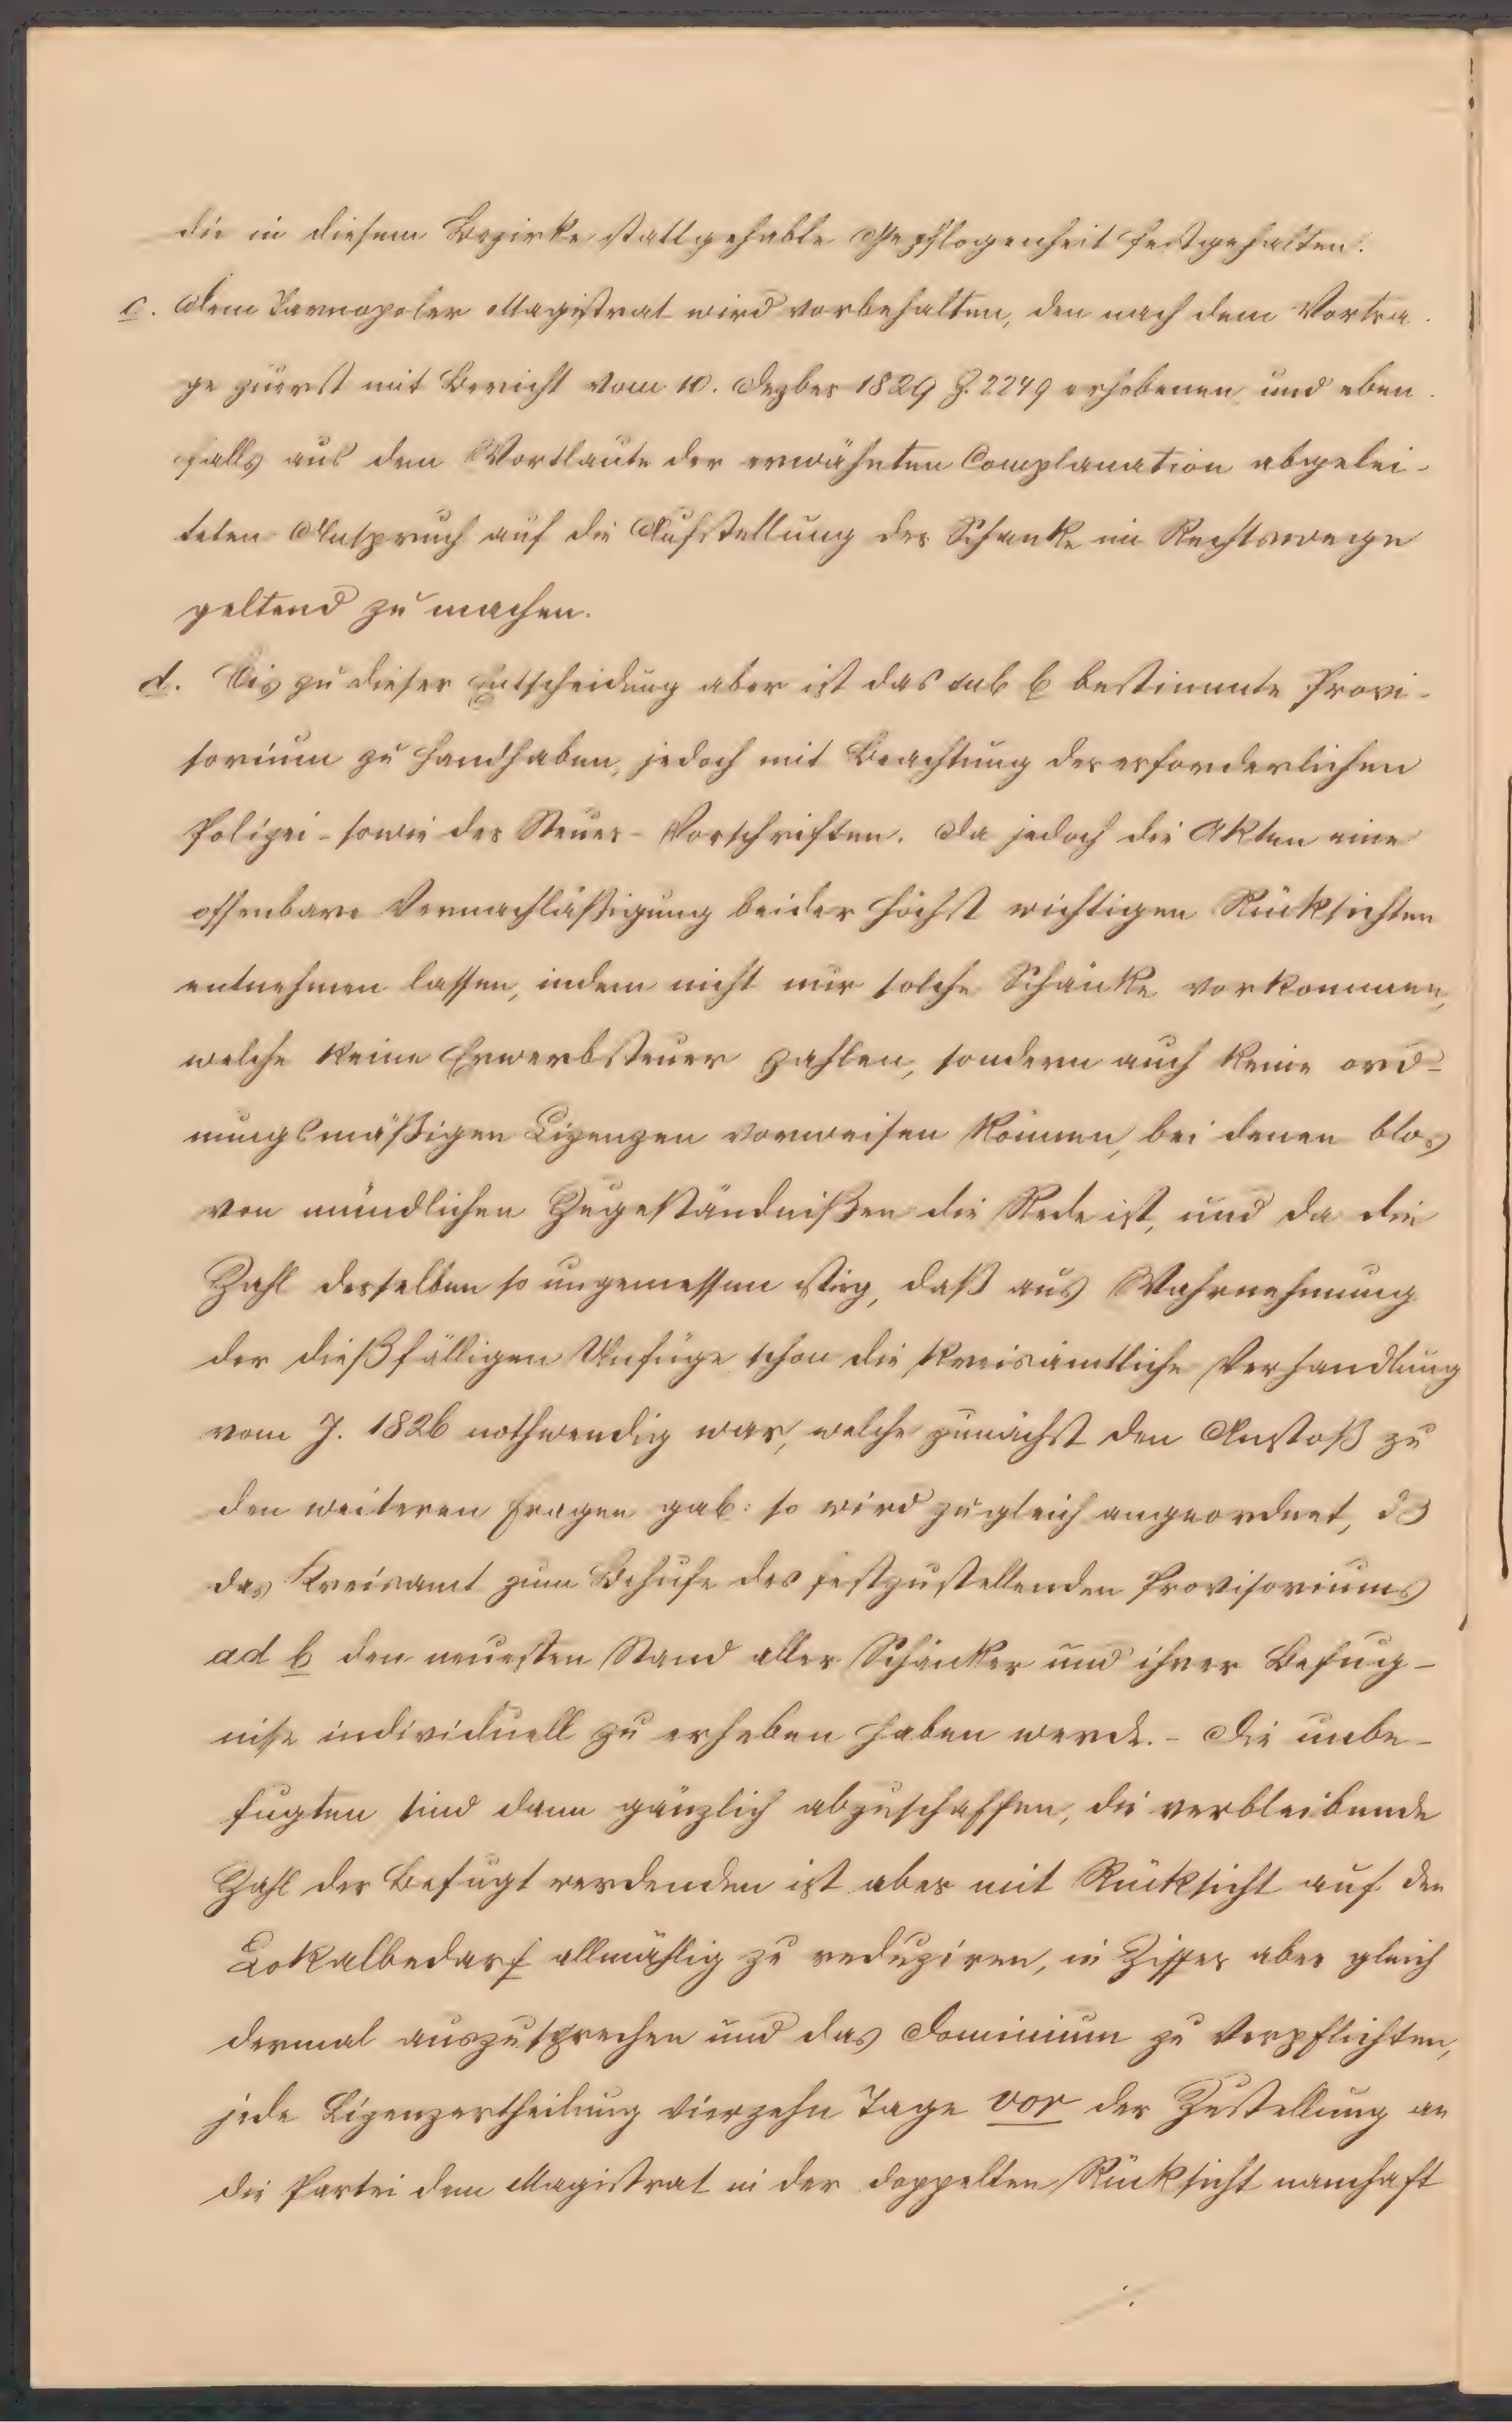 die in diesem Bezirke stattgehabte Gepflogenheit festgehalten.
c. Dem Tarnopoler Magistrat wird vorbehalten, den nach dem Vortra-
ge zuerst mit Bericht vom 10. Dezber 1829 Z. 2249 erhobenen und eben-
falls aus den Wortlaute der erwähnten Complanation abgelei-
teten Anspruch auf die Aufstellung der Schanke im Rechtswege
geltend zu machen.
d. Bis zu dieser Entscheidung aber ist das sub b bestimmte Provi-
sorium zu handhaben, jedoch mit Beachtung der erforderlichen
Polizei- sowie der Steuer-Vorschriften. Da jedoch die Akten eine
offenbare Vernachläßigung beider höchst wichtigen Rücksichten
entnehmen lassen, indem nicht nur solche Schänke vorkommen,
welche keine Erwerbsteuer zahlen, sondern auch keine ord-
nungsmäßigen Lizenzen vorweisen können, bei denen blos
von mündlichen Zugeständnißen die Rede ist, und da die
Zahl derselben so ungemessen stieg, daß aus Wahrnehmung
der dießfälligen Unfüge schon die kreisämtliche Verhandlung
vom J. 1826 nothwendig war, welche zunächst den Anstoß zu
den weiteren Fragen gab: so wird zugleich angeordnet, dß
das Kreisamt zum Behufe des festzustellenden Provisoriums
ad b den neuesten Stand aller Schänker und ihrer Befug-
nisse individuell zu erheben haben werde. - Die unbe-
fugten sind dann gänzlich abzuschaffen, die verbleibende
Zahl der Befugt werdenden ist aber mit Rücksicht auf den
Lokalbedarf allmählig zu reduziren, in Ziffer aber gleich
dermal auszusprechen und das Dominium zu verpflichten,
jede Lizenzertheilung vierzehn Tage vor der Zustellung an
die Partei dem Magistrat in der doppelten Rücksicht namhaft
./.